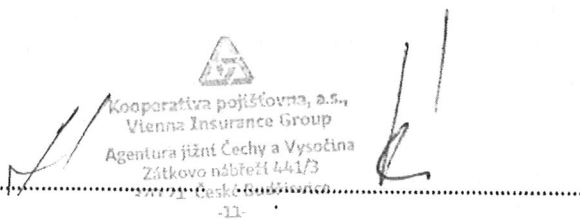 Kooperativa pojišťovna, a.s.,
Vienna Insurance Group
Agentura jižní Čechy a Vysočina
Zátkovo nábřeží 441/3
České Budějovice
-11-